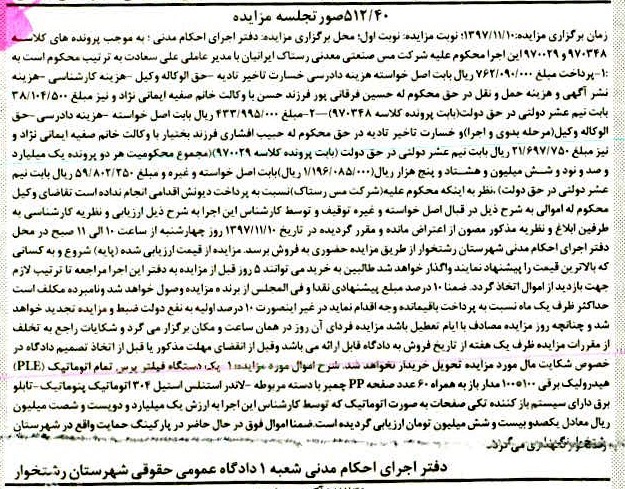 ۵۱۲/۴۰صورتجلسه مزایده
زمان برگزاری مزایده:۱۳۹۷/۱۱/۱۰؛ نوبت مزایده: نوبت اول؛ محل برگزاری مزایده: دفتر اجرای احکام مدنی ؛ به موجب پرونده های کلاسه
۹۷۰۳۴۸ و ۹۷۰۰۲۹ این اجرا محکوم علیه شرکت مس صنعتی معدنی رستاک ایرانیان با مدیر عاملی علی سعادت به ترتیب محکوم است به
:۱-پرداخت مبلغ ۷۶۲/۰۹۰/۰۰۰ ریال بابت اصل خواسته هزینه دادرسی خسارت تاخیر تادیه -حق الوکاله وکیل -هزینه کارشناسی -هزینه
نشر آگهی و هزینه حمل و نقل در حق محکوم له حسین فرقانی پور فرزند حسن با وکالت خانم صفیه ایمانی نژاد و نیز مبلغ ۳۸/۱۰۴/۵۰۰
بابت نیم عشر دولتی در حق دولت(بابت پرونده کلاسه ۹۷۰۳۴۸)—۲-مبلغ ۴۳۳/۹۹۵/۰۰۰ ریال بابت اصل خواسته -هزینه دادرسی-حق
الوکاله وکیل(مرحله بدوی و اجرا)و خسارت تاخیر تادیه در حق محکوم له حبیب افشاری فرزند بختیار با وکالت خانم صفیه ایمانی نژاد و
نیز مبلغ ۲۱/۶۹۷/۷۵۰ ریال بابت نیم عشر دولتی در حق دولت (بابت پرونده کلاسه ۹۷۰۰۲۹)(مجموع محکومیت هر دو پرونده یک میلیارد
و صد و نود و شش میلیون و هشتاد و پنج هزار ریال(۱/۱۹۶/۰۸۵/۰۰۰ ریال)بابت اصل خواسته و غیره و مبلغ ۵۹/۸۰۲/۲۵۰ ریال بابت نیم
عشر دولتی در حق دولت) ،نظر به اینکه محکوم علیه(شرکت مس رستاک)نسبت به پرداخت دیونش اقدامی انجام نداده است تقاضای وکیل
محکوم له اموالی به شرح ذیل در قبال اصل خواسته و غیره توقیف و توسط کارشناس این اجرا به شرح ذیل ارزیابی و نظریه کارشناسی به
طرفین ابلاغ و نظریه مذکور مصون از اعتراض مانده و مقرر گردیده در تاریخ ۱۳۹۷/۱۱/۱۰ روز چهارشنبه از ساعت ۱۰ الی ۱۱ صبح در محل
دفتر اجرای احکام مدنی شهرستان رشتخوار از طریق مزایده حضوری به فروش برسد. مزایده از قیمت ارزیابی شده (پایه) شروع و به کسانی
که بالاترین قیمت را پیشنهاد نمایند واگذار خواهد شد طالبین به خرید می توانند ۵ روز قبل از مزایده به دفتر این اجرا مراجعه تا ترتیب لازم
جهت بازدید از اموال اتخاذ گردد. ضمنا ۱۰ درصد مبلغ پیشنهادی نقدا و فی المجلس از برنده مزایده وصول خواهد شد ونامبرده مکلف است
حداکثر ظرف یک ماه نسبت به پرداخت باقیمانده وجه اقدام نماید در غیر اینصورت ۱۰ درصد اولیه به نفع دولت ضبط و مزایده تجدید خواهد
شد و چنانچه روز مزایده مصادف با ایام تعطیل باشد مزایده فردای آن روز در همان ساعت و مکان برگزار می گردد و شکایات راجع به تخلف
از مقررات مزایده ظرف یک هفته از تاریخ فروش به دادگاه قابل ارائه می باشد وقبل از انقضای مهلت مذکور یا قبل از اتخاذ تصمیم دادگاه در
خصوص شکایت مال مورد مزایده تحویل خریدار نخواهد شد. شرح اموال مورد مزایده:۱- یک دستگاه فیلتر پرس تمام اتوماتیک (PLE)
هیدرولیک برقی ۱۰۰*۱۰۰ مدار باز به همراه ۶۰ عدد صفحه PP چمبر با دسته مربوطه -لاندر استنلس استیل ۳۰۴ اتوماتیک پنوماتیک -تابلو
برق دارای سیستم باز کننده تکی صفحات به صورت اتوماتیک که توسط کارشناس این اجرا به ارزش یک میلیارد و دویست و شصت میلیون
ریال معادل یکصدو بیست و شش میلیون تومان ارزیابی گردیده است.ضمنا اموال فوق در حال حاضر در پارکینگ حمایت واقع در شهرستان
رشتخوار نگهداری می گردد.
دفتر اجرای احکام مدنی شعبه ۱ دادگاه عمومی حقوقی شهرستان رشتخوار